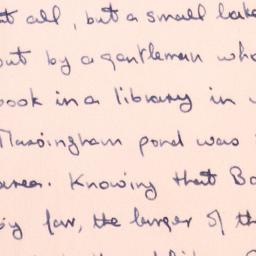 at all, but a small lake
out by a gentleman who
book in a library in
Massingham pond was
area. Knowing that Ba
by far, the larger of th